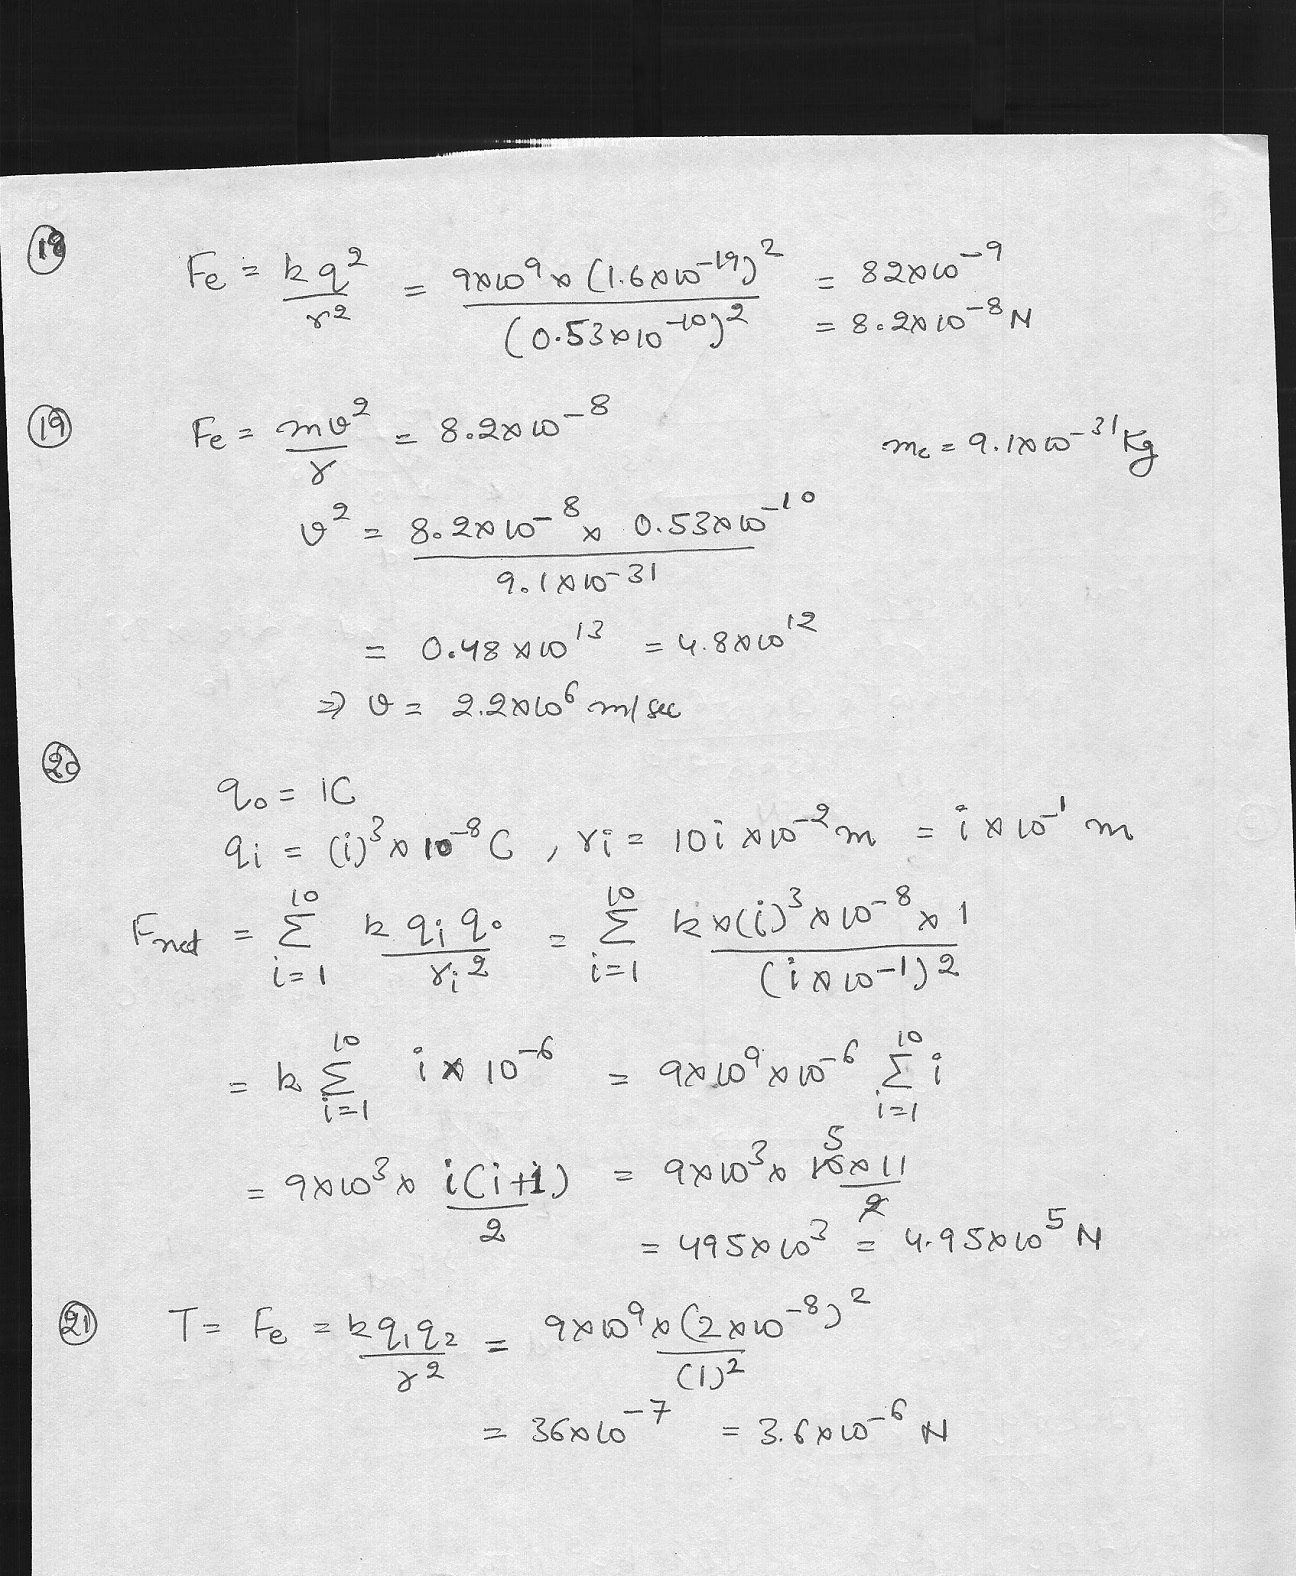 (18) Fe = kq²/r² = 9×10⁹×(1.6×10⁻¹⁹)²/(0.53×10⁻¹⁰)² = 82×10⁻⁹
= 8.2×10⁻⁸ N
(19) Fe = mv²/r = 8.2×10⁻⁸ me = 9.1×10⁻³¹ Kg
v² = 8.2×10⁻⁸ × 0.53×10⁻¹⁰/9.1×10⁻³¹
= 0.48×10¹³ = 4.8×10¹²
⇒ v = 2.2×10⁶ m/sec
(20)
q₀ = 1C
qi = (i)³×10⁻⁸ C , ri = 10i×10⁻² m = i×10⁻¹ m
Fnet = Σ_{i=1}^{10} k qi q₀/ri² = Σ_{i=1}^{10} k×(i)³×10⁻⁸×1/(i×10⁻¹)²
= k Σ_{i=1}^{10} i×10⁻⁶ = 9×10⁹×10⁻⁶ Σ_{i=1}^{10} i
= 9×10³× i(i+1)/2 = 9×10³× 10×11/2 5
= 495×10³ = 4.95×10⁵ N
(21) T = Fe = kq₁q₂/r² = 9×10⁹×(2×10⁻⁸)²/(1)²
= 36×10⁻⁷ = 3.6×10⁻⁶ N